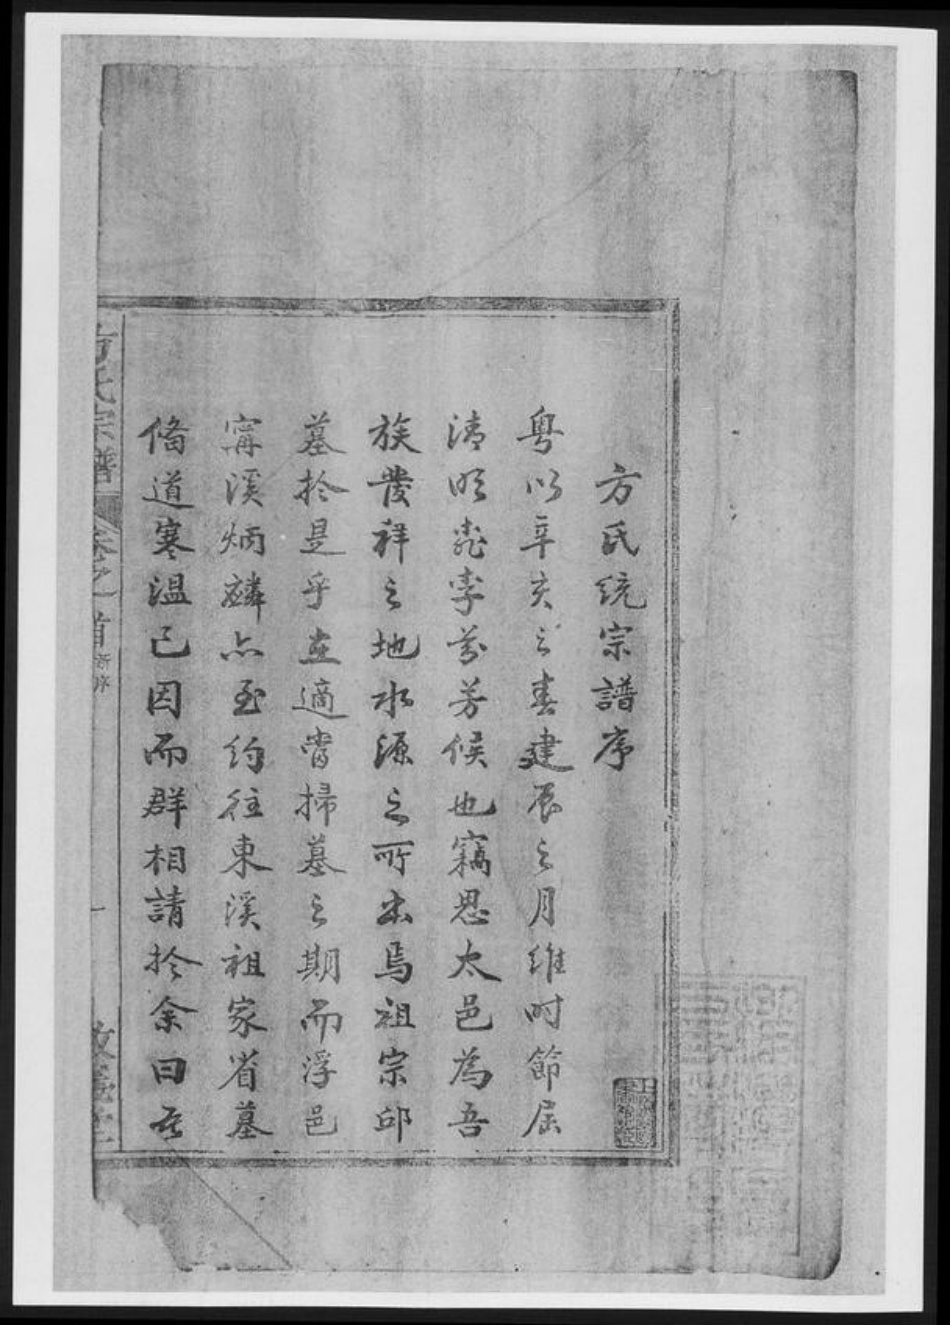 方氏統宗譜序
粤以辛亥之春建辰之月維时節屆
清明桃李芬芳候也竊思太邑為吾
族發祥之地水源之所出焉祖宗邱
墓扵是乎在適當掃墓之期而浮邑
寗溪炳麟亦至約往東溪祖家省墓
偹道寒温已因而群相請扵余曰吾
方氏宗譜
卷之首
新序
一
敦